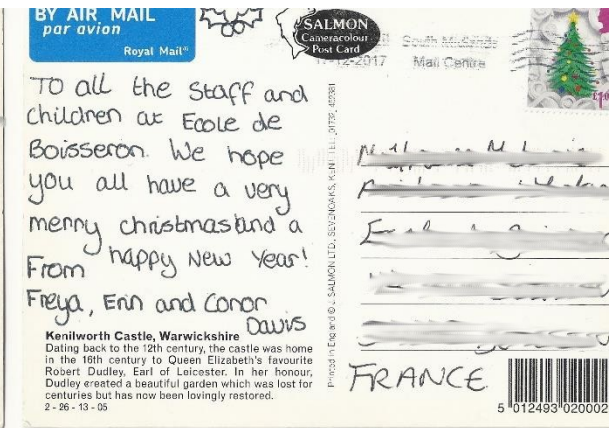 BY AIR MAIL
par avion
Royal Mail®
SALMON
Cameracolour
Post Card
South Midlands
Mail Centre
12-2017
To all the staff and
children at Ecole de
Boisseron. We hope
you all have a very
merry christmas and a
happy New Year!
From
Freya, Erin and Conor
Davis
Kenilworth Castle, Warwickshire
Dating back to the 12th century, the castle was home
in the 16th century to Queen Elizabeth's favourite
Robert Dudley, Earl of Leicester. In her honour,
Dudley created a beautiful garden which was lost for
centuries but has now been lovingly restored.
2 - 26 - 13 - 05
Printed in England © J. SALMON LTD., SEVENOAKS, KENT
FRANCE
5 012493 020002